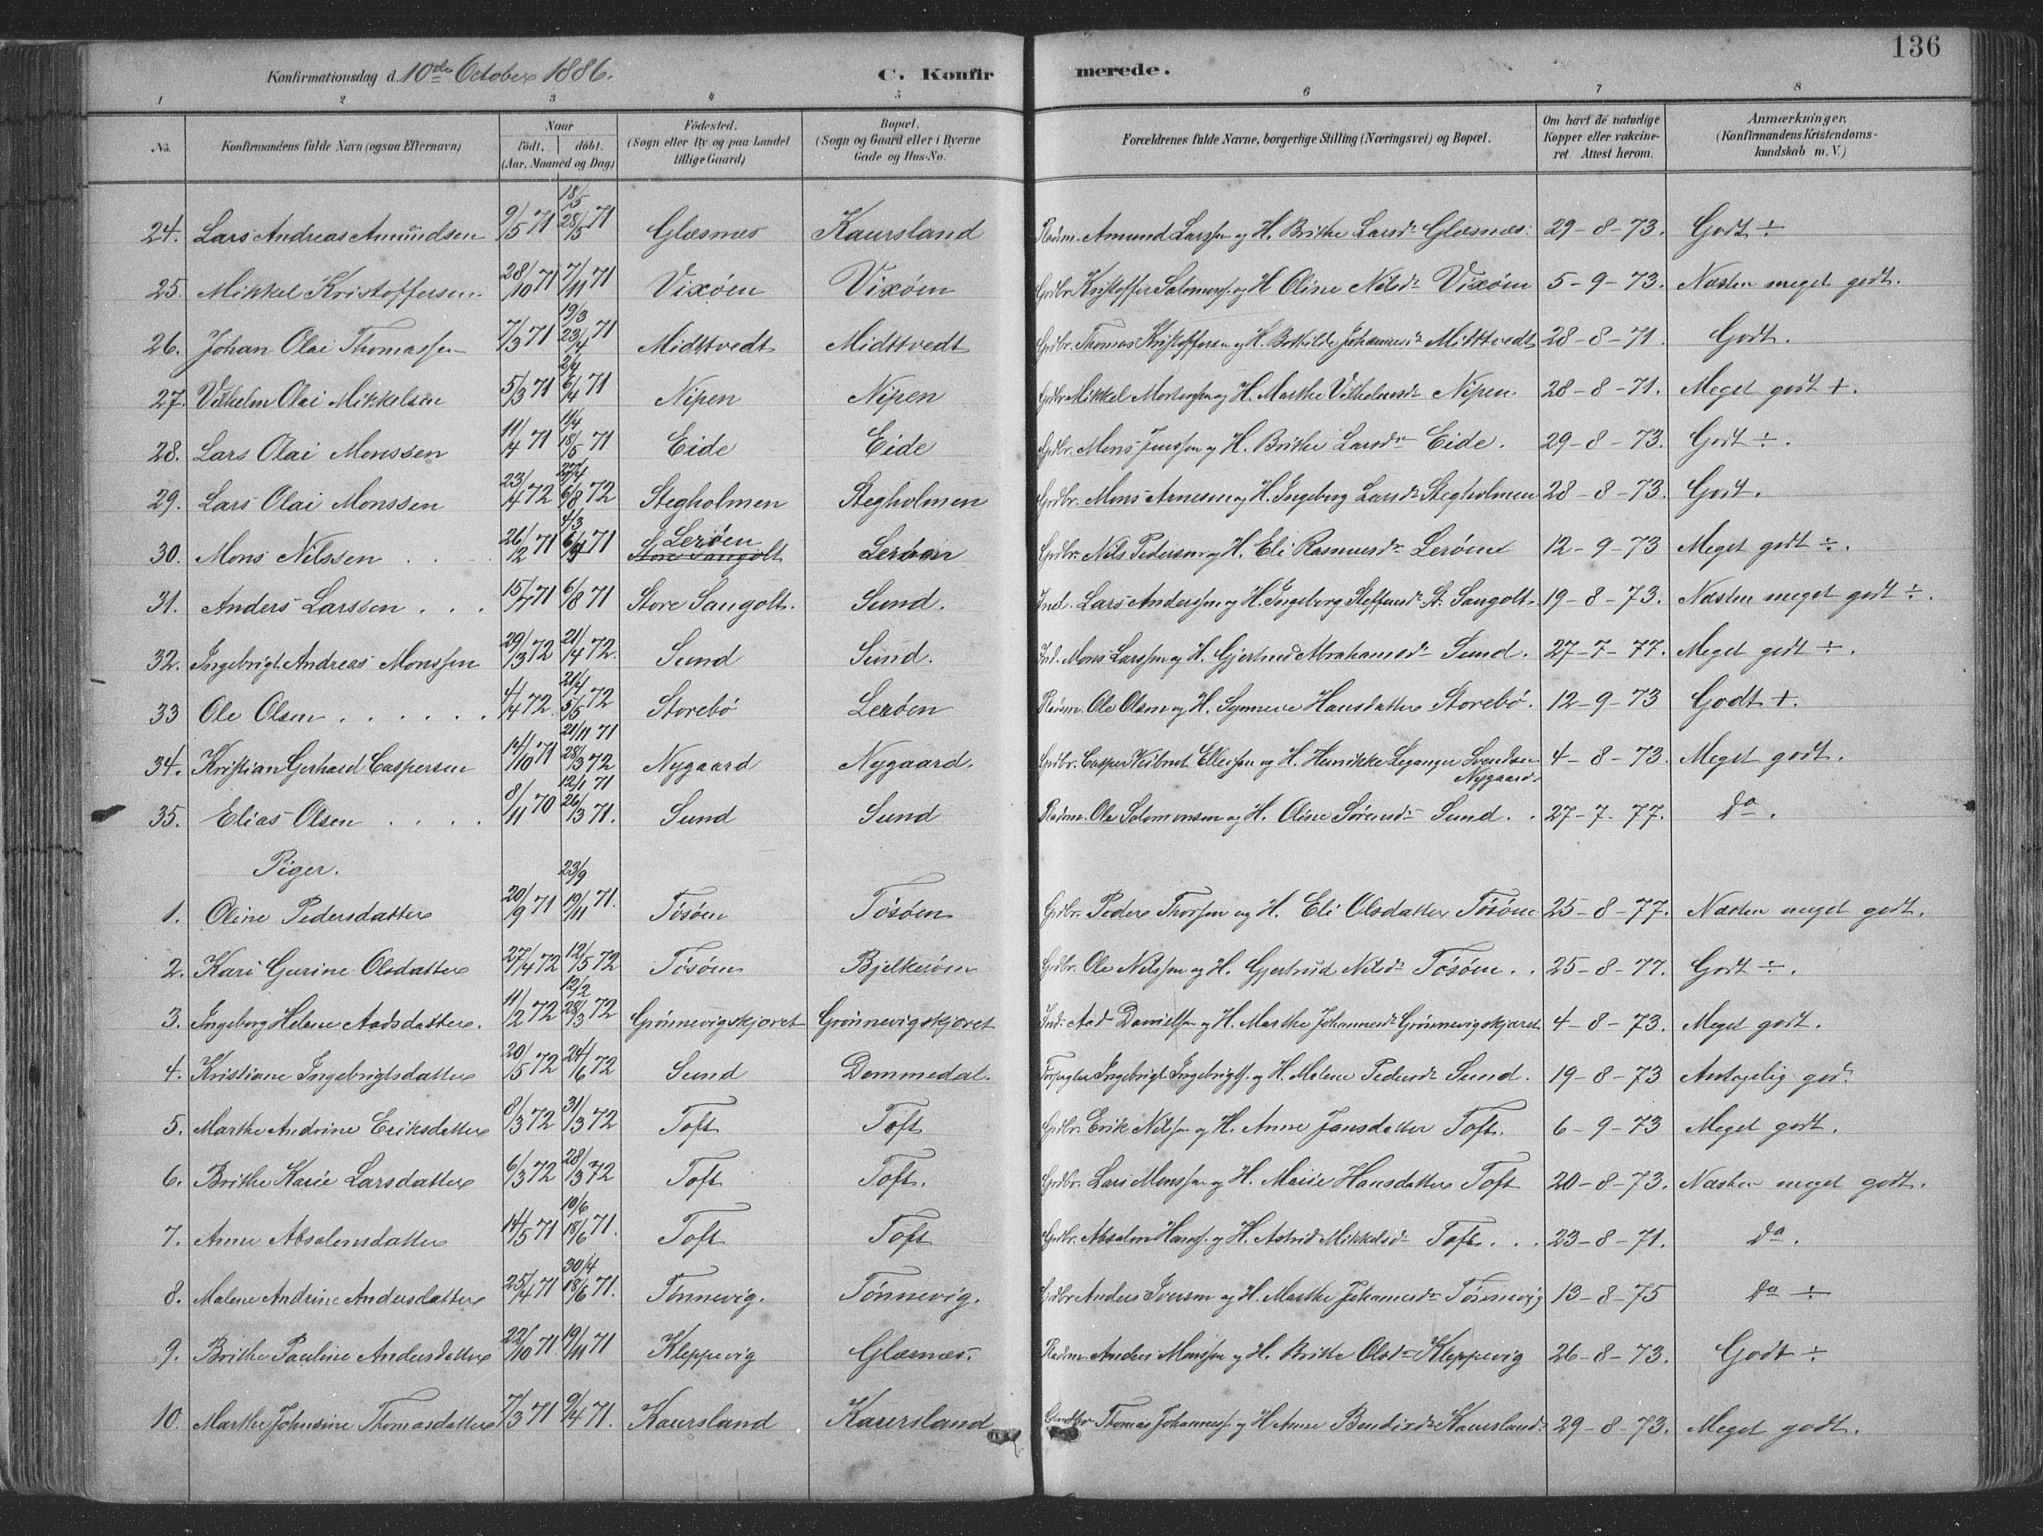 136
Konfirmationsdag d. 10de October 1886. C. Konfirmerede.
1 2 3 4 5 6 7 8
No. Konfirmandens fulde Navn (ogsaa Efternavn) Naar født, døbt. (Aar, Maaned og Dag) Fødested. (Sogn eller By og paa Landet tillige Gaard) Bopæl. (Sogn og Gaard eller i Byerne Gade og Hus-No. Forældrenes fulde Navne, borgerlige Stilling (Næringsvei) og Bopæl. Om havt de naturlige Kopper eller vakcineret. Attest herom. Anmærkninger, (Konfirmandens Kristendomskundskab m. V.)
24. Lars Andreas Amundsen 9/5 71 18/5 28/5 71 Glæsnes Kaursland Pladsm. Amund Larssen og H. Brithe Larsdr Glæsnes. 29-8-73. Godt ÷
25. Mikkel Kristoffersen 28/10 71 7/11 71 Vixøen Vixøen Grdbr. Kristoffer Salomons. og H. Oline Nilsdr Vixøen 5-9-73. Næsten meget godt.
26. Johan Olai Thomassen 7/3 71 19/3 23/4 71 Midttvedt Midttvedt Grdbr. Thomas Kristoffersen og H. Bothilde Johannesdr Midttvedt 28-8-71. Godt.
27. Vilhelm Olai Mikkelsen 5/3 71 2/4 6/4 71 Nipen Nipen Grdbr. Mikkel Mortensen og H. Marthe Vilhelmsdr Nipen. 28-8-71. Meget godt +.
28. Lars Olai Monssen 11/4 71 11/4 18/5 71 Eide Eide Grdbr. Mons Jenssen og H. Brithe Larsdr Eide. 29-8-73. Godt ÷.
29. Lars Olai Monssen 23/4 72 27/4 6/8 72 Stegholmen Stegholmen Grdbr. Mons Arnesen og H. Ingeborg Larsdr Stegholmen 28-8-73. Godt.
30. Mons Nilssen 26/2 71 4/3 71 Lerøen Store Sangolt Lerøen Grdbr. Nils Pedersen og H. Eli Rasmusdr Lerøen 12-9-73 Meget godt ÷.
31. Anders Larssen 15/7 71 6/8 71 Store Sangolt. Sund. Ind. Lars Anderssen og H. Ingeborg Steffensdr St. Sangolt. 19-8-73. Næsten meget godt ÷.
32. Ingebrigt Andreas Monssen 29/3 72 21/4 72. Sund Sund. Ind. Mons Larssen og H. Gjertrud Abrahamsdr Sund. 27-7-77. Meget godt ÷.
33 Ole Olsen 4/4 72. 21/4 5/5 72 Storebø Lerøen Pladsm. Ole Olsen og H. Synneve Hansdatter Storebø. 12-9-73 Godt +.
34. Kristian Gerhard Caspersen 14/10 71 21/11 71 28/3 72 Nygaard Nygaard. Grdbr. Casper Ellefsen og H. Henrikke Leganger Svendsen Nygaard. 4-8-73. Meget godt.
35. Elias Olsen 8/11 70 12/1 71 26/3 71. Sund Sund Pladsm. Ole Salomonsen og H. Oline Sørensdr Sund. 27-7-77. Do.
Piger.
1. Oline Pedersdatter 20/9 71 23/9 19/11 71. Tøsøen Tøsøen Grdbr. Peder Thorssen og H. Eli Olsdatter Tøsøen 25-8-77. Næsten meget godt.
2. Kari Gurine Olsdatter 27/4 72 12/5 72 Tøsøen Bjelkerøen Grdbr. Ole Nilssen og H. Gjertrud Nilsdr Tøsøen. 25-8-77. Godt ÷.
3. Ingeborg Helene Aadsdatter. 11/2 72 12/2 28/3 72 Grønnevigskjæret Grønnevigskjæret Ind. Aad Danielsen og H. Marthe Johannesdr Grønnevigskjæret 4-8-73. Meget godt.
4. Kristiane Ingebrigtsdatter 20/5 72 24/6 72 Sund Dommedal. Ingebrigt Ingebrigts. og H. Malene Pedersdr Sund. 19-8-73 Antagelig god.
5. Marthe Andrine Eriksdatter 8/3 72 31/3 72 Toft Toft Grdbr. Erik Nilsen og H. Anne Jansdatter Toft. 6-9-73 Meget godt.
6. Brithe Karie Larsdatter 6/3 72 28/3 72 Toft Toft. Grdbr. Lars Monssen og H. Marie Hansdatter Toft 20-8-73. Næsten meget godt.
7. Anne Absalonsdatter 14/5 71 10/6 18/6 71. Toft Toft Grdbr. Absalon Hanss. og H. Astrid Mikkelsdr Toft. 23-8-71. Do.
8. Malene Andrine Andersdatter 25/4 71 30/4 18/6 71. Tønnevig. Tønnevig. Grdbr. Anders Iversen og H. Marthe Johannesdr Tønnevig 13-8-75 Do ÷
9. Brithe Pauline Andersdatter 22/10 71. 19/11 71 Kleppevig Glæsnes. Pladsm. Anders Monssen og H. Brithe Olsdr Kleppevig 26-8-73. Godt ÷
10. Marthe Johnsine Thomasdatter 7/3 71 9/4 71. Kaursland Kaursland Thomas Johanness. og H. Anne Bendixdr Kaursland. 29-8-73. Meget godt.